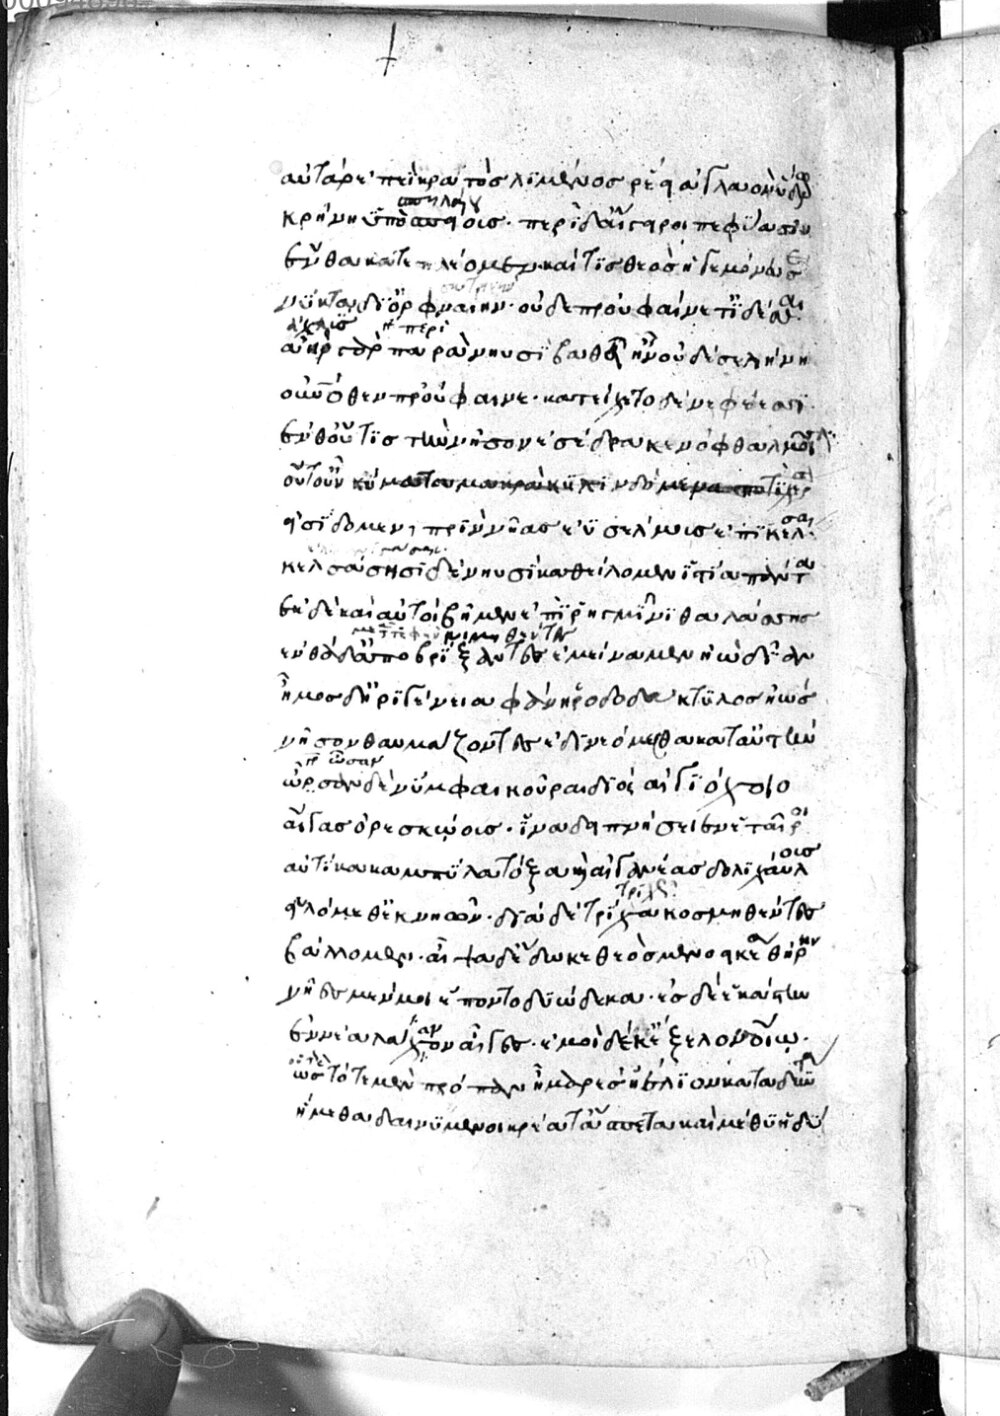 αὐτὰρ ἐπὶ κρατὸς λιμένος ῥέει ἀγλαὸν ὕδωρ
σπηλαίου
κρήνη ὑπὸ σπείους· περὶ δ' αἴγειροι πεφύασιν
ἔνθα κατεπλέομεν· καί τις θεὸς ἡγεμόνευεν
νύκτα δι' ὀρφναίην· οὐδὲ προὐφαίνετ' ἰδέσθαι·
ἀχλὺς ἢ περὶ
ἀὴρ γὰρ παρὰ νηυσὶ βαθεῖ' ἦν οὐδὲ σελήνη
οὐρανόθεν προὔφαινε· κατείχετο δὲ νεφέεσσι·
ἔνθ' οὔτις τὴν νῆσον ἐσέδρακεν ὀφθαλμοῖσιν
οὔτ' οὖν κύματα μακρὰ κυλινδόμενα ποτὶ χέρσον
εἰσίδομεν, πρὶν νῆας ἐϋσσέλμους ἐπικέλσαι·
κελσάσῃσι δὲ νηυσὶ καθείλομεν ἱστία πάντα
ἐκ δὲ καὶ αὐτοὶ βῆμεν ἐπὶ ῥηγμῖνι θαλάσσης
ἔνθα δ' ἀποβρίξαντες ἐμείναμεν ἠῶ δῖαν
ἦμος δ' ἠριγένεια φάνη ῥοδοδάκτυλος ἠώς
νῆσον θαυμάζοντες ἐδινεόμεθα κατ' αὐτήν
ὦρσαν δὲ νύμφαι κοῦραι διὸς αἰγιόχοιο
αἶγας ὀρεσκῴους· ἵνα δειπνήσειεν ἑταῖροι
αὐτίκα καμπύλα τόξα καὶ αἰγανέας δολιχαύλους
εἱλόμεθ' ἐκ νηῶν· διὰ δὲ τρίχα κοσμηθέντες
βάλλομεν· αἶψα δ' ἔδωκε θεὸς μενοεικέα θήρην
νῆες μέν μοι ἕποντο δυώδεκα· ἐς δὲ ἑκάστην
ἐννέα λάγχανον αἶγες· ἐμοὶ δὲ δέκ' ἔξελον οἴῳ·
ὣς τότε μὲν πρόπαν ἦμαρ ἐς ἠέλιον καταδύντα
ἥμεθα δαινύμενοι κρέατ' ἄσπετα καὶ μέθυ ἡδύ